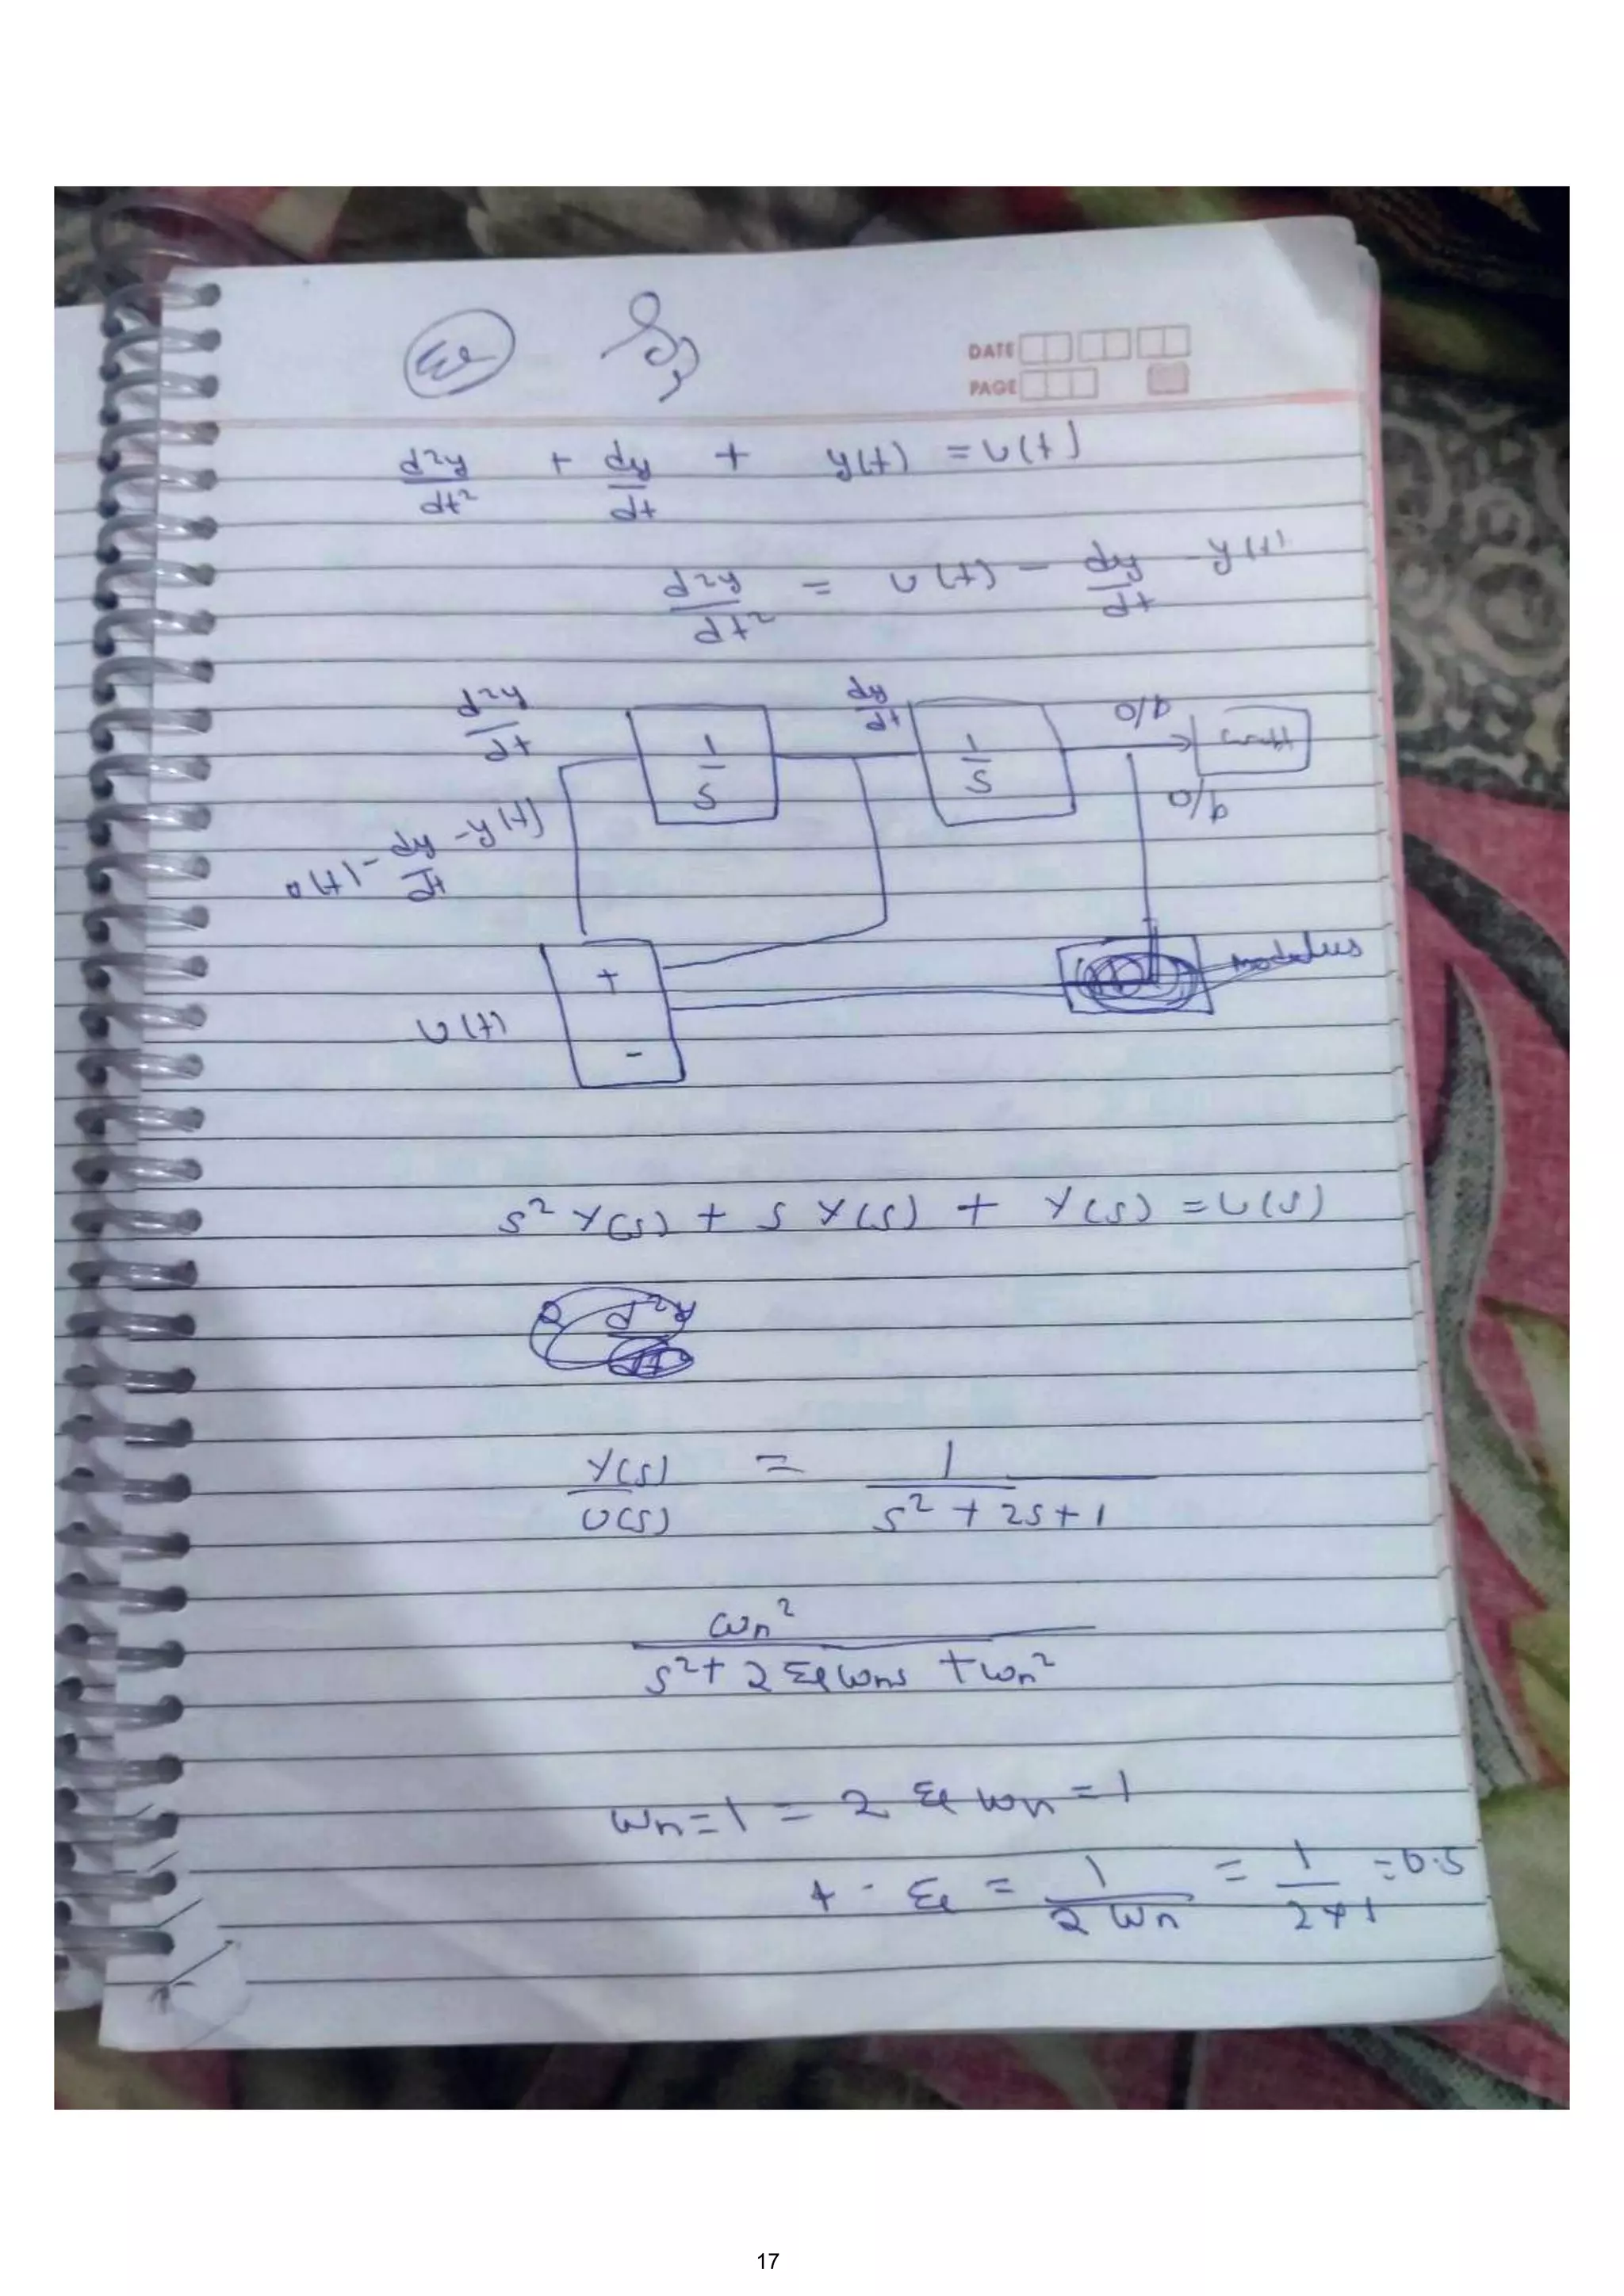 DATE
PAGE
d²y/dt² + dy/dt + y(t) = u(t)
d²y/dt² = u(t) - dy/dt - y(t)
d²y/dt
1/S
dy/dt
1/S
o/p
o/p
u(t) - dy/dt - y(t)
+
modulus
u(t)
-
s² Y(s) + s Y(s) + Y(s) = U(s)
d²y
Y(s)/U(s) = 1/(s² + 2s + 1)
ωn²/(s² + 2 ξ ωn s + ωn²)
ωn = 1 = 2 ξ ωn = 1
ξ = 1/(2 ωn) = 1/(2×1) = 0.5
17